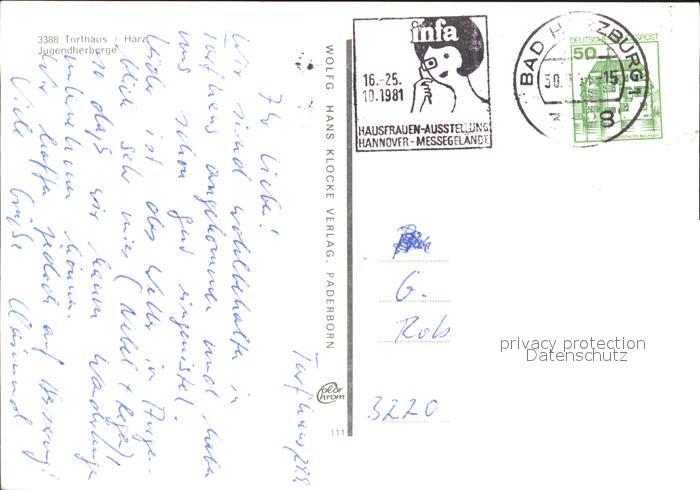 3388 Torfhaus / Harz
Jugendherberge
Ihr Lieben!
Wir sind wohlbehalten in
Torfhaus angekommen und haben
uns schon gut eingenistet.
Leider ist das Wetter im Augen-
blick sehr mies (Nebel + Regen)
so daß wir kaum Wanderungen
unternehmen können.
Wir hoffen jedoch auf Besserung!
Viele Grüße
WOLFG. HANS KLOCKE VERLAG, PADERBORN
Color
Chrom
111
infa
16.-25.
10.1981
HAUSFRAUEN-AUSSTELLUNG
HANNOVER-MESSEGELÄNDE
BAD HARZBURG 1
30.
-15
DEUTSCHE BUNDESPOST
50
G.
3220
privacy protection
Datenschutz